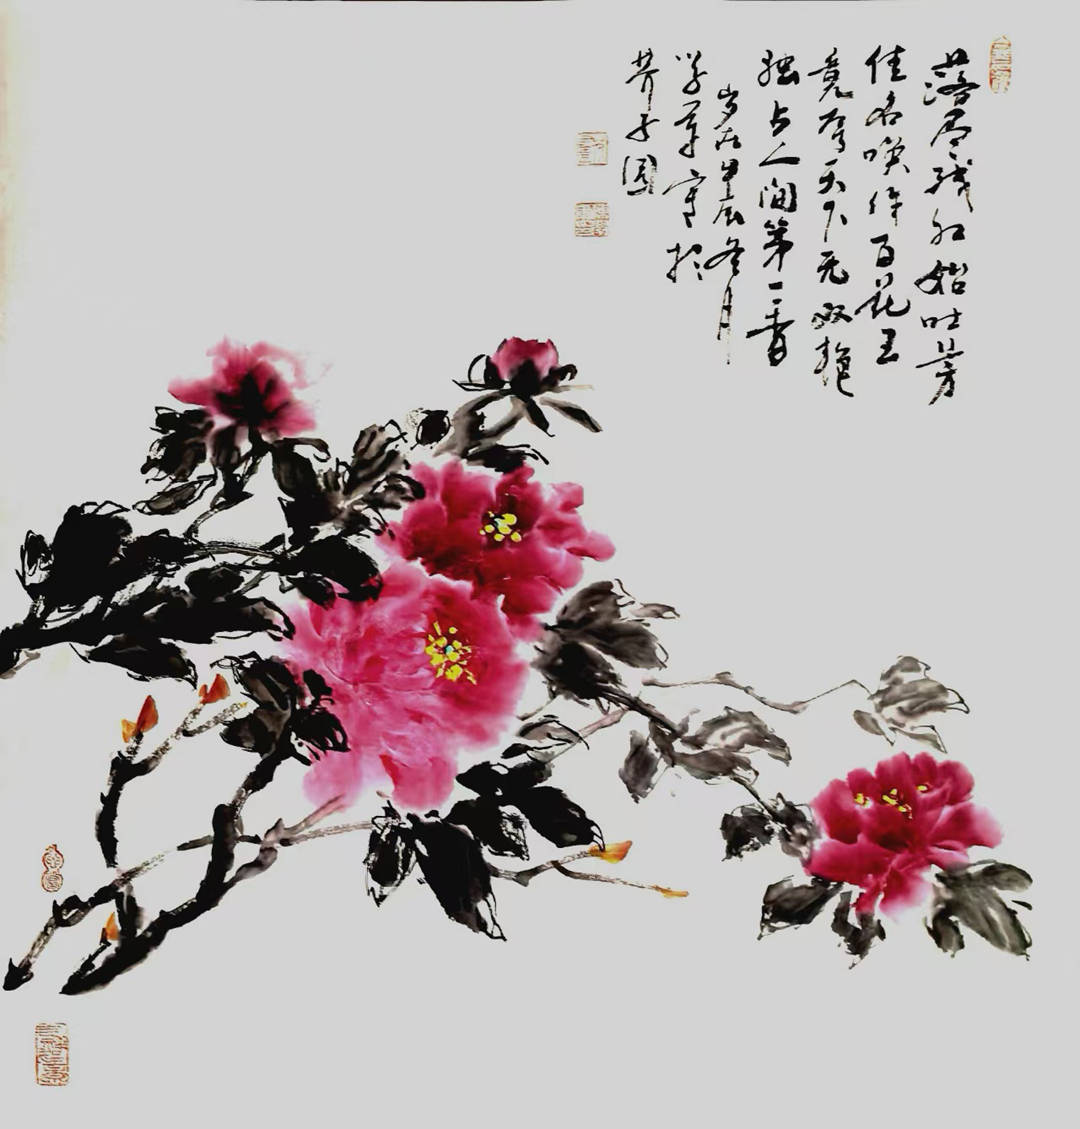 落尽残红始吐芳
佳名唤作百花王
竟夸天下无双艳
独占人间第一香
岁在甲辰冬月
学军写於
芥子园